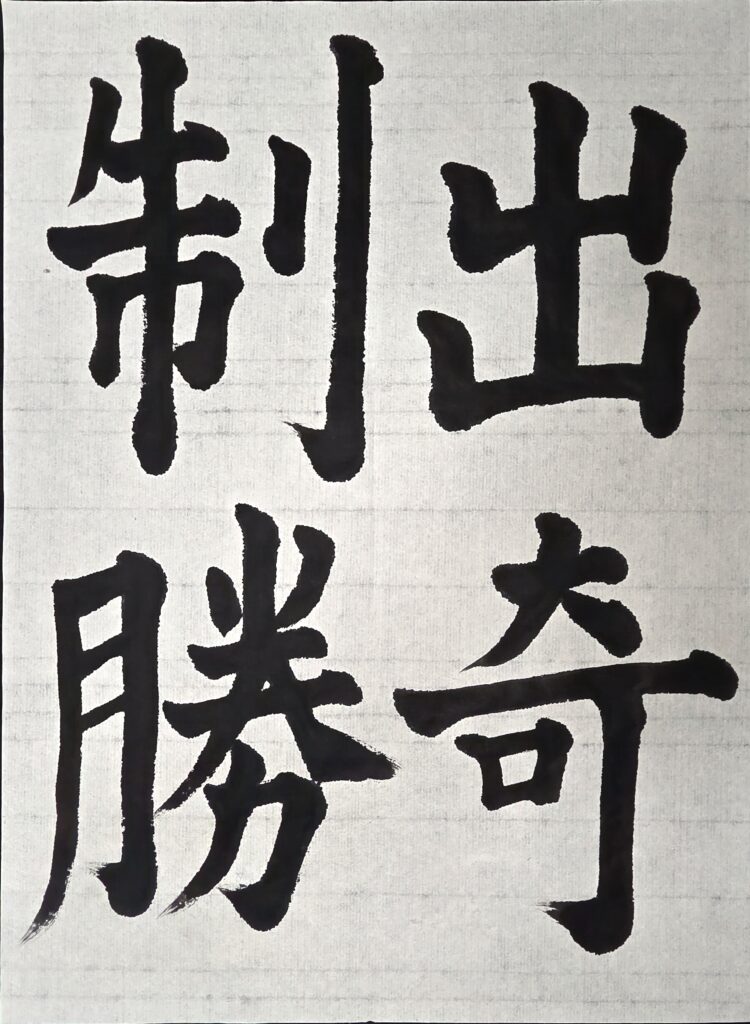 出奇
制勝